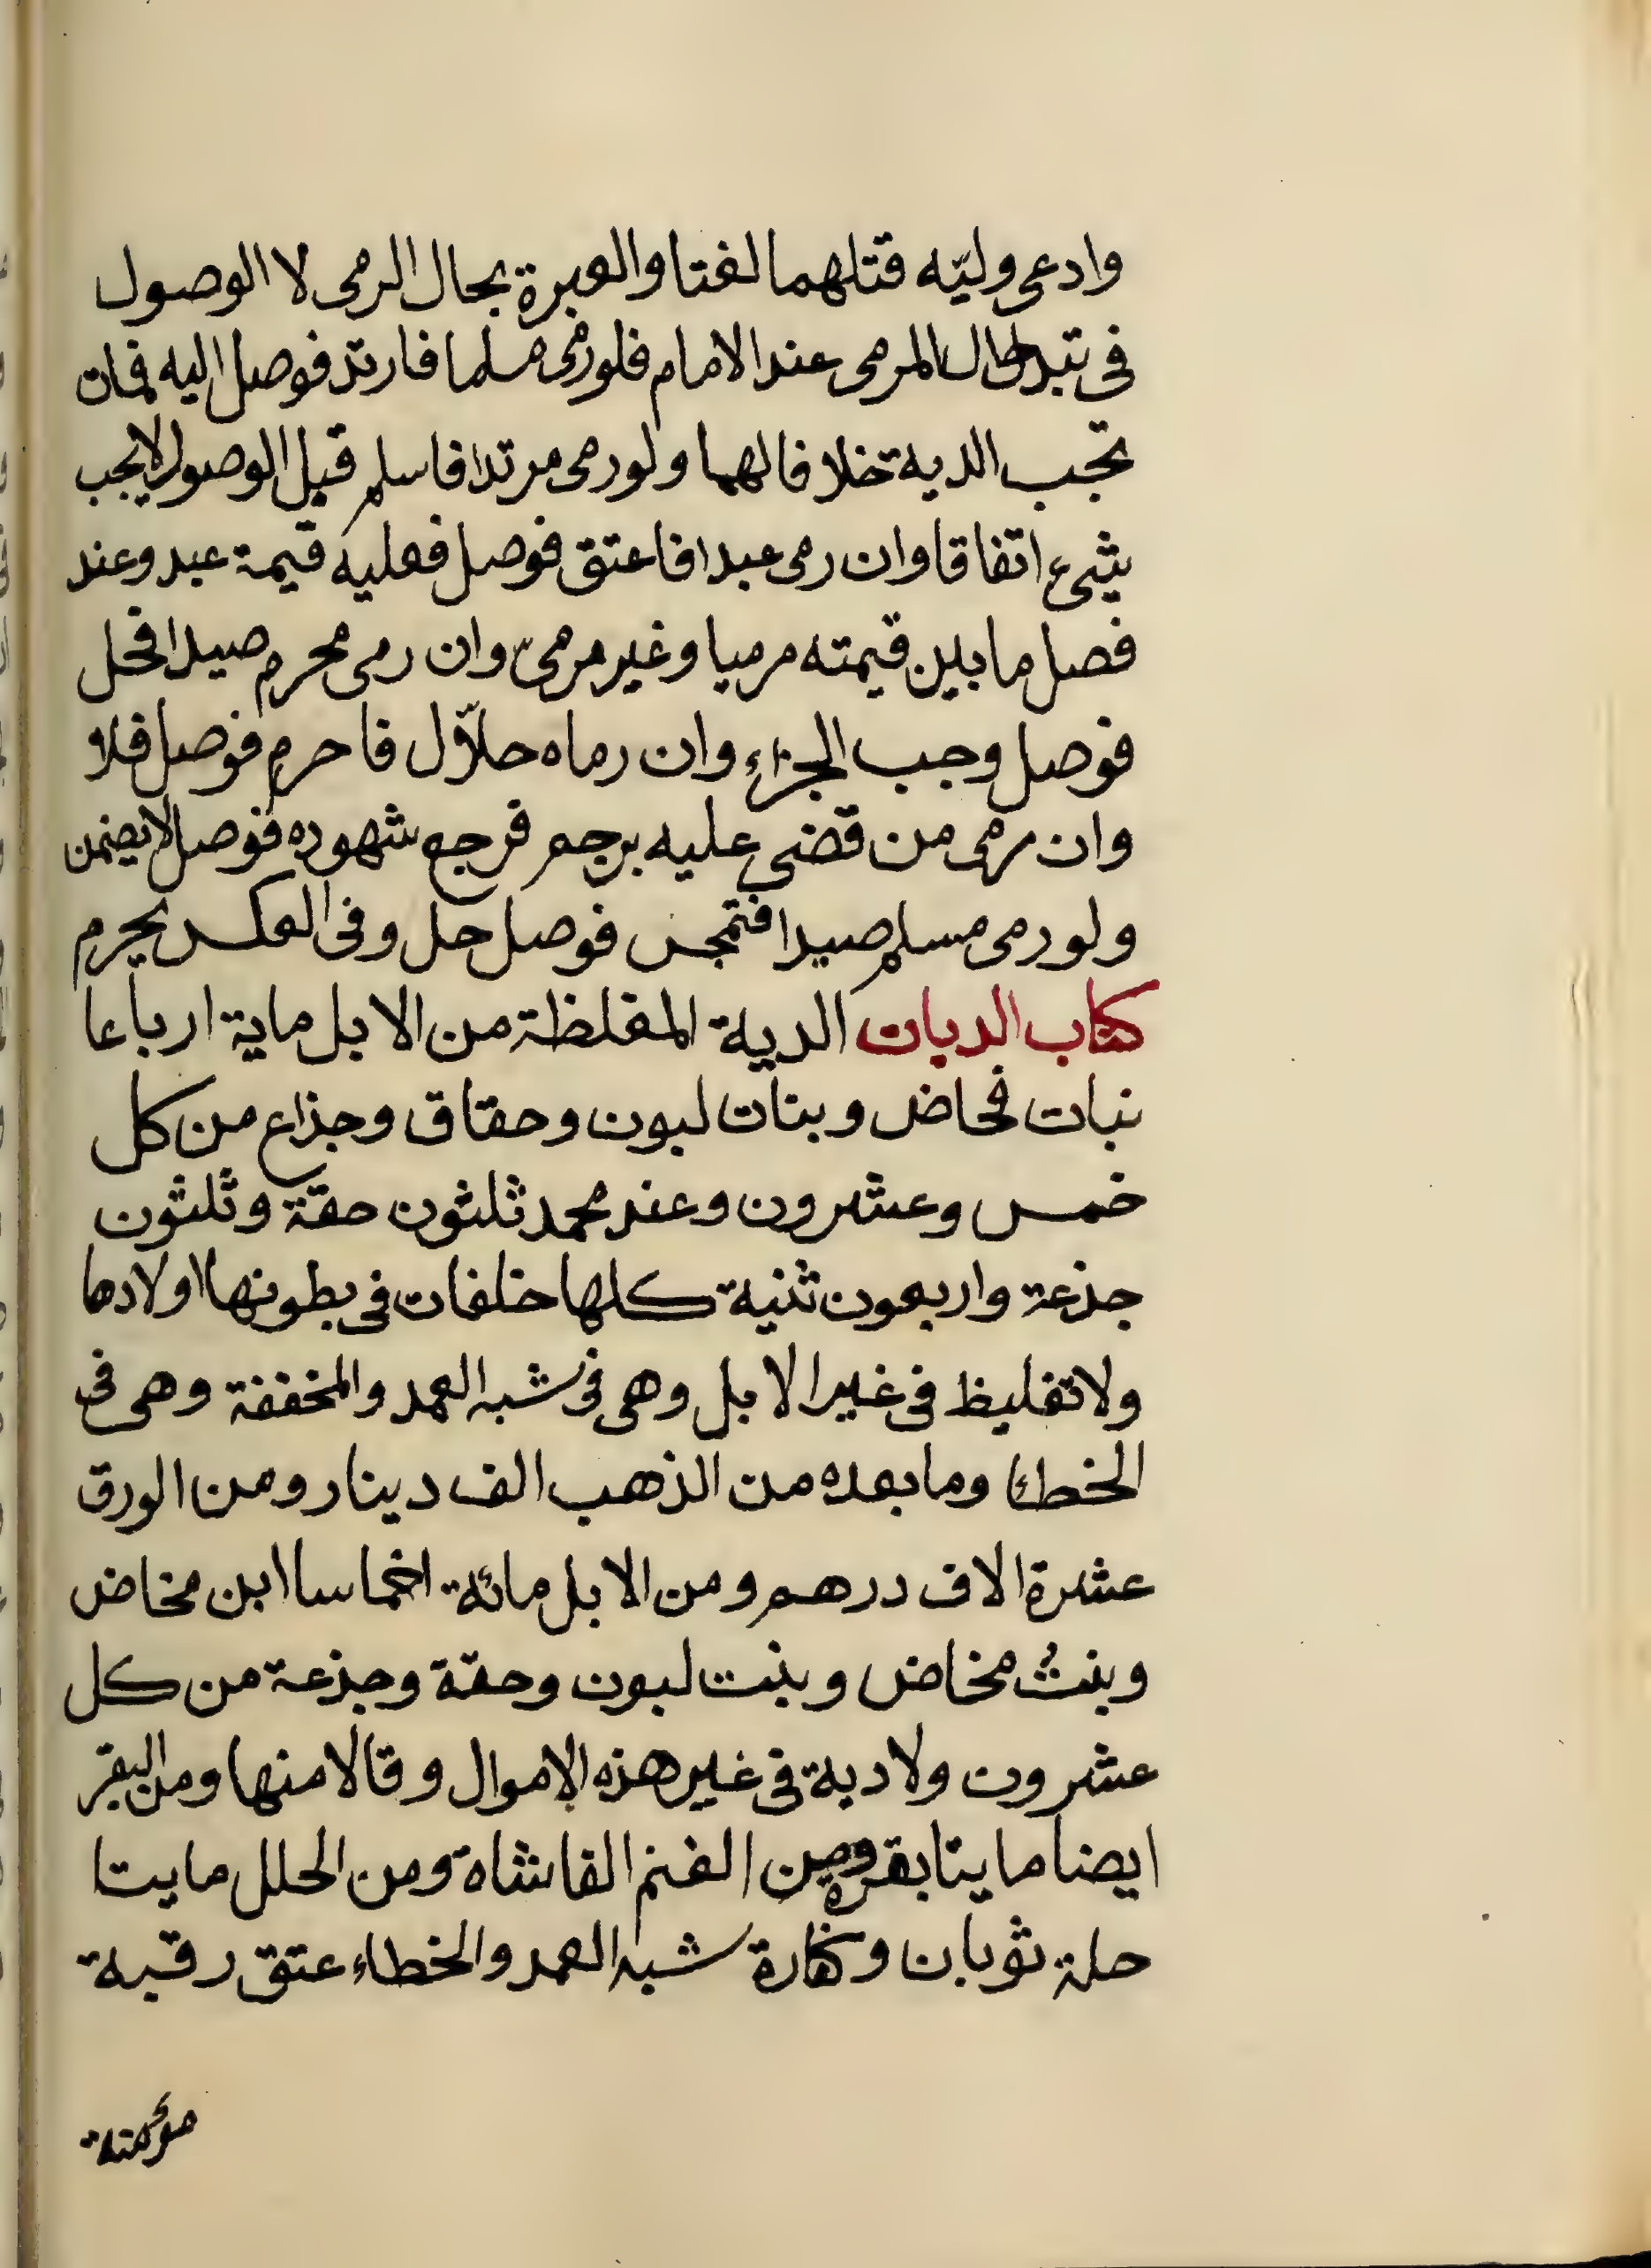 وادعى وليّه قتلهما لغتا والعبرة بحال الرمى لا الوصول
فى تبدل حال المرمى عند الامام فلو رمى مسلما فارتد فوصل اليه فمات
تجب الدية خلافا لهما ولو رمى مرتدا فاسلم قبل الوصول لا يجب
شىء اتفاقا وان رمى عبدا فاعتق فوصل فعليه قيمة عبد وعند
فضل ما بين قيمته مرميا وغير مرمىّ وان رمى محرم صيدا فحل
فوصل وجب الجزاء وان رماه حلاّل فاحرم فوصل فلا
وان رمى من قضى عليه برجم فرجع شهوده فوصل لا يضمن
ولو رمى مسلم صيدا فتمجس فوصل حل وفى العكس يحرم
كتاب الديات الدية المغلظة من الابل ماية ارباعا
بنات مخاض وبنات لبون وحقاق وجذاع من كل
خمس وعشرون وعند محمد ثلثون حقة وثلثون
جذعة واربعون ثنية كلها خلفات فى بطونها اولادها
ولا تغليظ فى غير الابل وهى فى شبه العمد والمخففة وهى فى
الخطاء وما بعده من الذهب الف دينار ومن الورق
عشرة الاف درهم ومن الابل مائة اخماسا ابن مخاض
وبنت مخاض وبنت لبون وحقة وجذعة من كل
عشرون ولا دية فى غير هذه الاموال وقالا منها ومن البقر
ايضا مايتا بقرة ومن الغنم الفا شاة ومن الحلل مايتا
حلة ثوبان وكفارة شبه العمد والخطاء عتق رقبة
مؤمنة